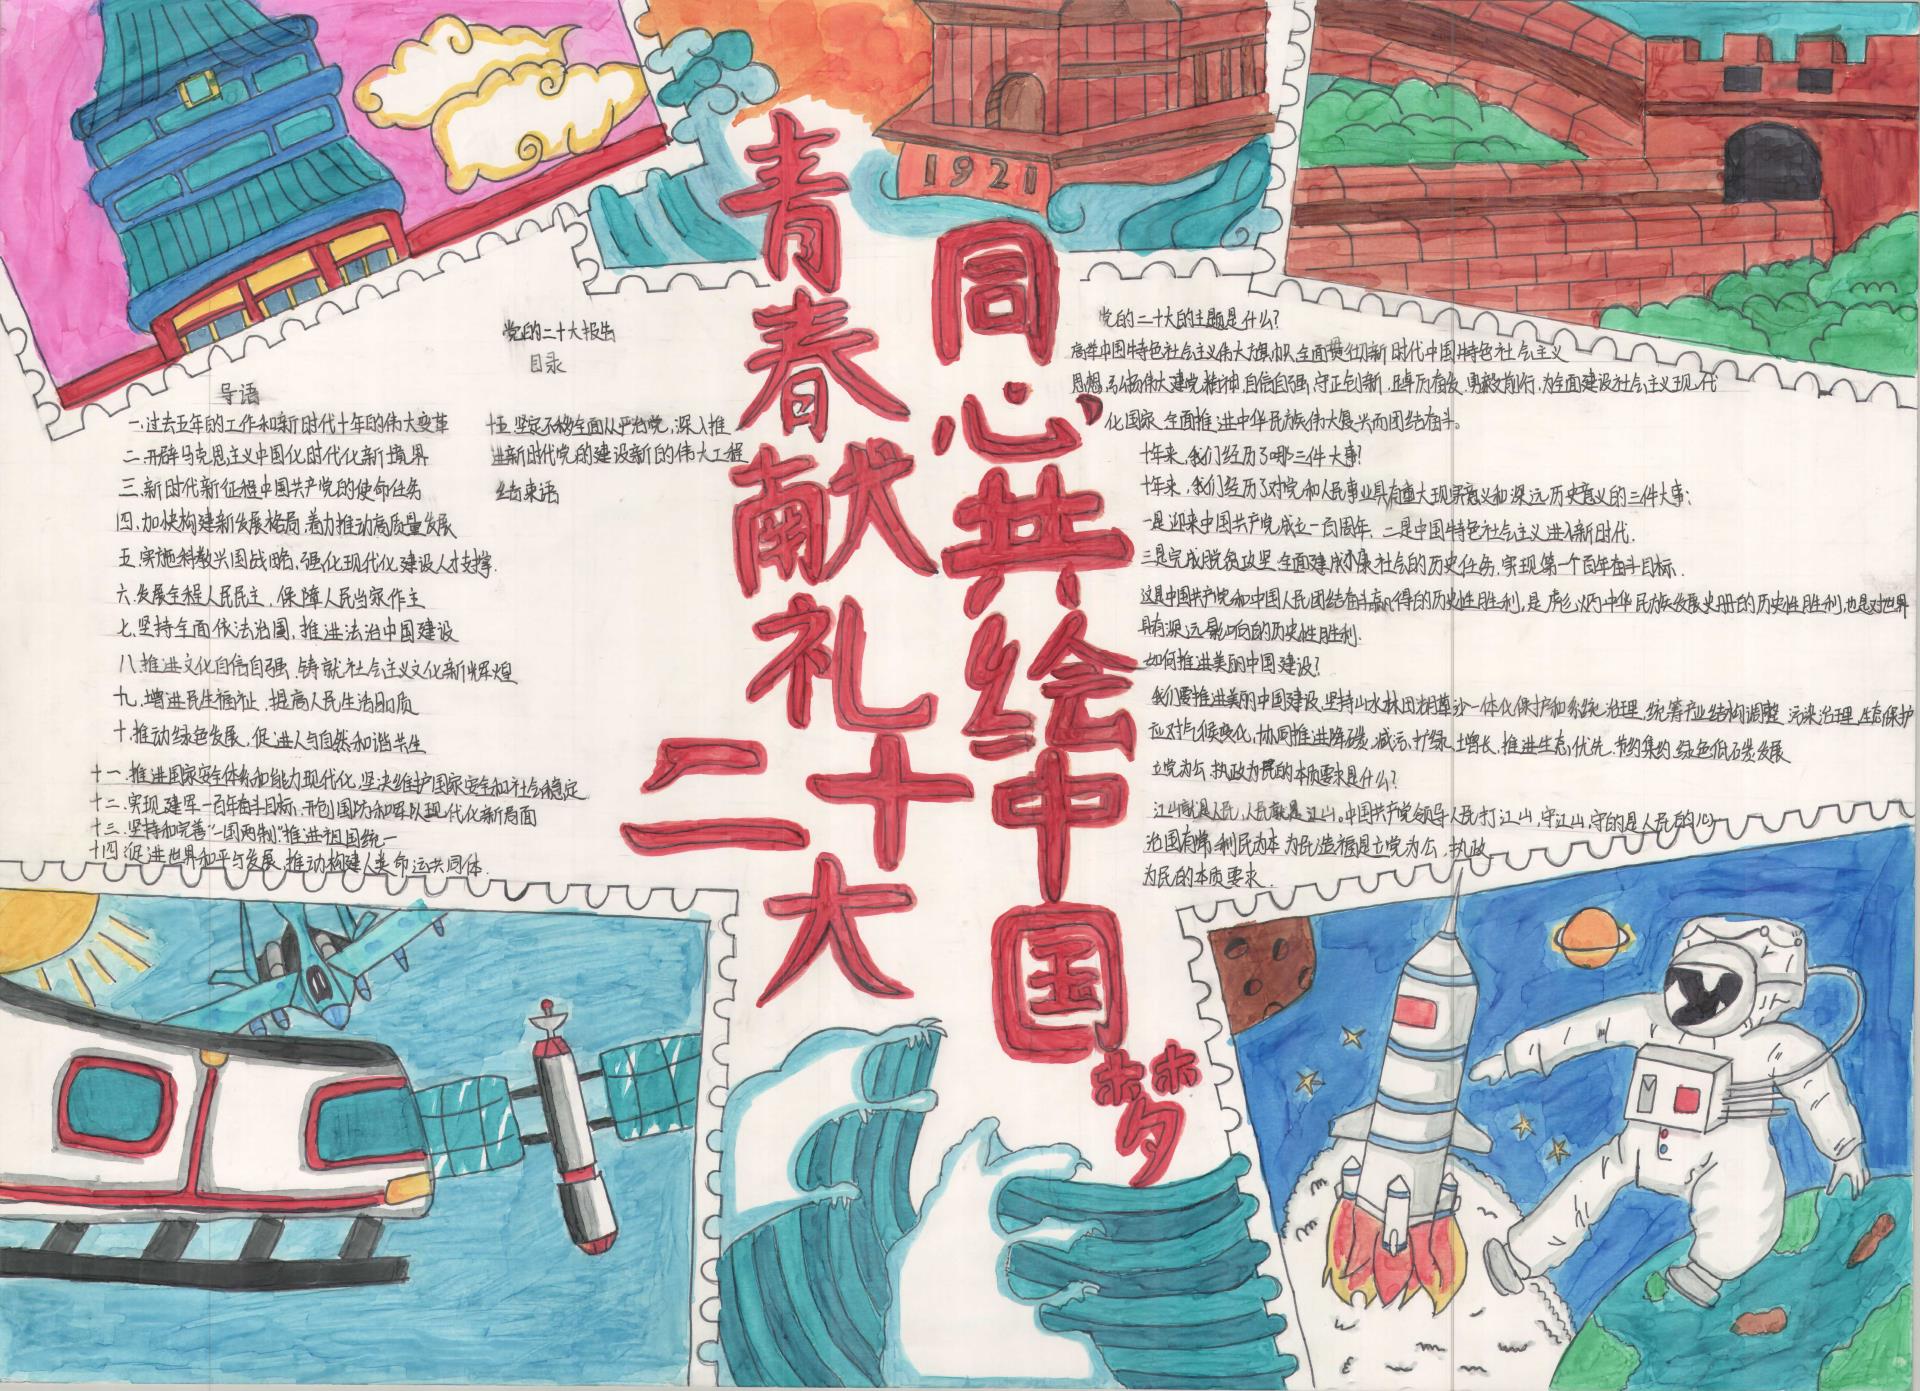 1921
青春献礼二十大
同心共绘中国梦
党的二十大报告
目录
导语
一.过去五年的工作和新时代十年的伟大变革
二.开辟马克思主义中国化时代化新境界
三.新时代新征程中国共产党的使命任务
四.加快构建新发展格局,着力推动高质量发展
五.实施科教兴国战略,强化现代化建设人才支撑.
六.发展全程人民民主,保障人民当家作主
七.坚持全面依法治国,推进法治中国建设
八.推进文化自信自强,铸就社会主义文化新辉煌
九.增进民生福祉,提高人民生活品质
十.推动绿色发展,促进人与自然和谐共生
十一.推进国家安全体系和能力现代化,坚决维护国家安全和社会稳定
十二.实现建军一百年奋斗目标,开创国防和军队现代化新局面
十三.坚持和完善“一国两制”推进祖国统一
十四.促进世界和平与发展,推动构建人类命运共同体.
十五.坚定不移全面从严治党,深入推
进新时代党的建设新的伟大工程
结束语
党的二十大的主题是什么?
高举中国特色社会主义伟大旗帜,全面贯彻新时代中国特色社会主义
思想,弘扬伟大建党精神,自信自强,守正创新,踔厉奋发,勇毅前行,为全面建设社会主义现代
化国家,全面推进中华民族伟大复兴而团结奋斗。
十年来,我们经历了哪三件大事?
十年来,我们经历了对党和人民事业具有重大现实意义和深远历史意义的三件大事:
一是迎来中国共产党成立一百周年,二是中国特色社会主义进入新时代.
三是完成脱贫攻坚,全面建成小康社会的历史任务,实现第一个百年奋斗目标.
这是中国共产党和中国人民团结奋斗赢得的历史性胜利,是彪炳中华民族发展史册的历史性胜利,也是对世界
具有深远影响的历史性胜利.
如何推进美丽中国建设?
我们要推进美丽中国建设,坚持山水林田湖草沙一体化保护和系统治理,统筹产业结构调整,污染治理,生态保护
应对气候变化,协同推进降碳,减污,扩绿,增长,推进生态优先,节约集约,绿色低碳发展
立党为公,执政为民的本质要求是什么?
江山就是人民,人民就是江山。中国共产党领导人民打江山,守江山,守的是人民的心
治国有常,利民为本,为民造福是立党为公,执政
为民的本质要求.